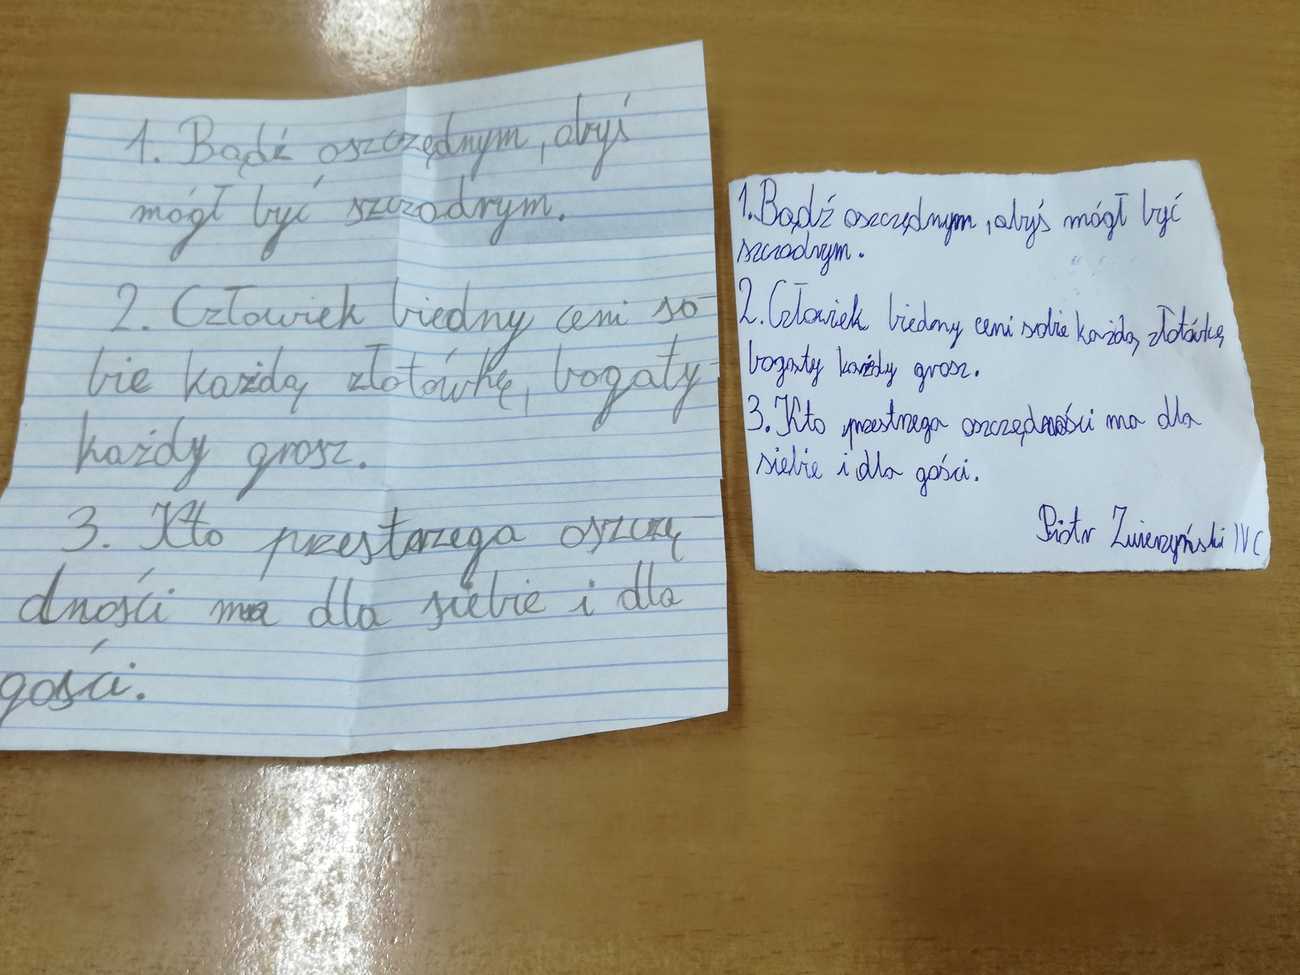 1. Bądź oszczędnym, abyś
mógł być szczodrym.
2. Człowiek biedny ceni so-
bie każdą złotówkę, bogaty-
każdy grosz.
3. Kto przestrzega oszczę
dności ma dla siebie i dla
gości.
1. Bądź oszczędnym, abyś mógł być
szczodrym.
2. Człowiek biedny ceni sobie każdą złotówkę
bogaty każdy grosz.
3. Kto przestrzega oszczędności ma dla
siebie i dla gości.
Piotr Zwierzyński IV C